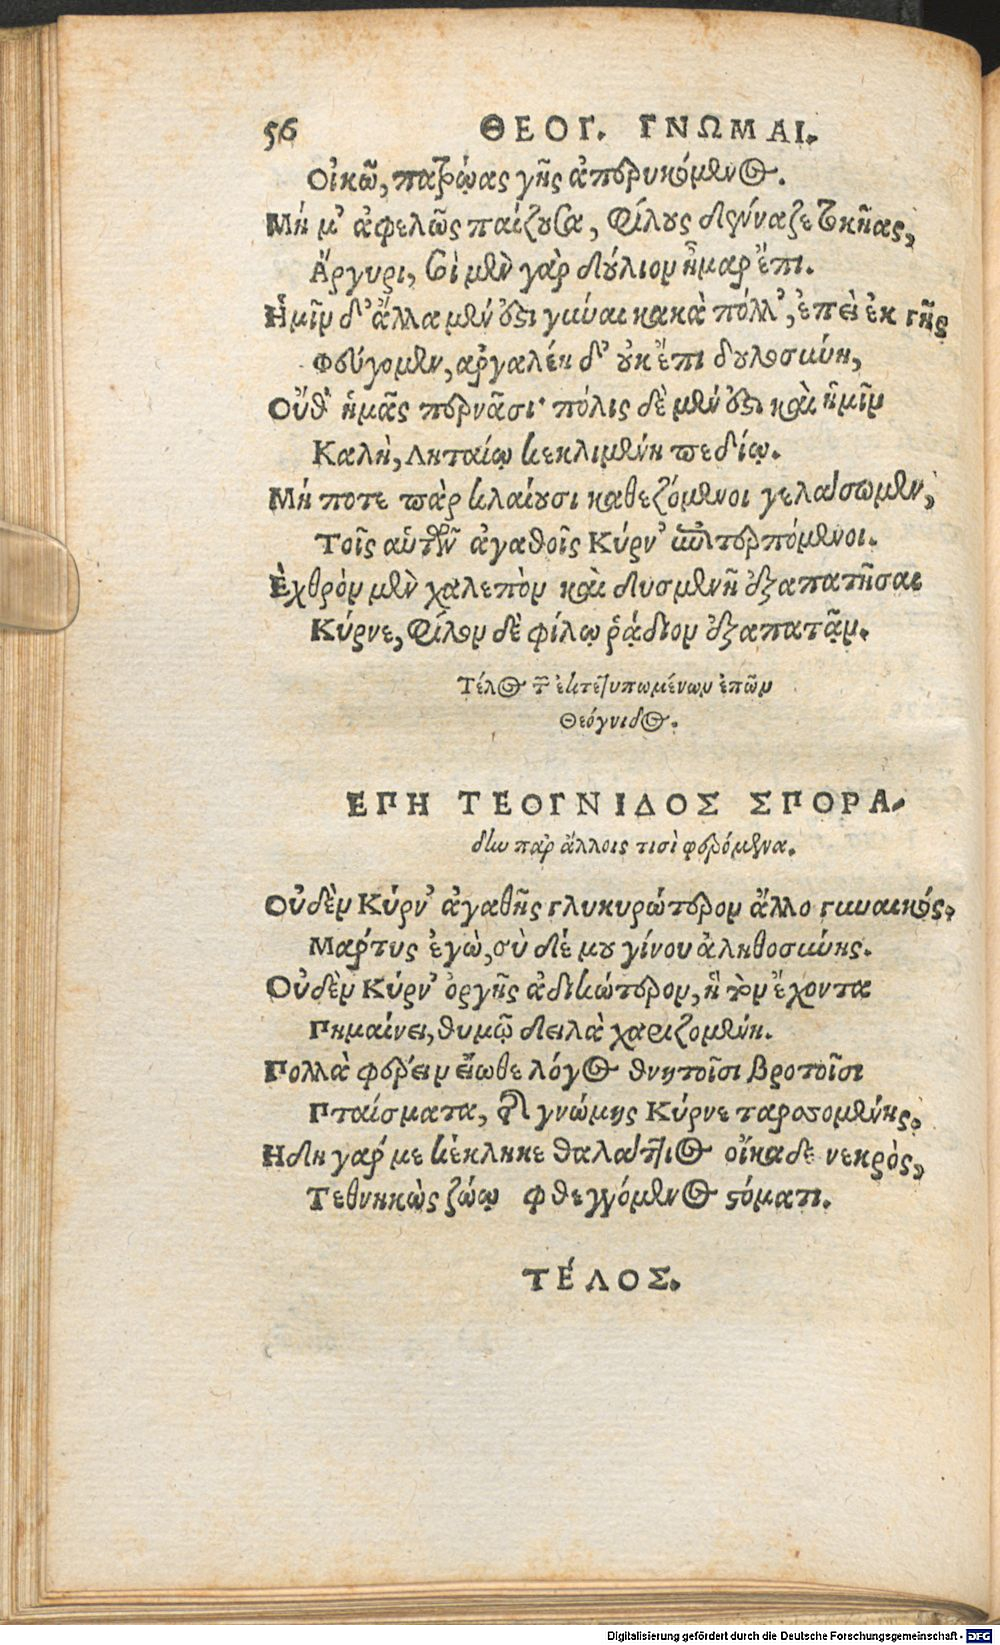 56 ΘΕΟΓ. ΓΝΩΜΑΙ.
Οἰκῶ, πατρῴας γῆς ἀπερυκόμενος.
Μή μ' ἀφελῶς παίζουσα, φίλους δέννάζε τοκῆας,
Ἄργυρι, σοὶ μὲν γὰρ δούλιον ἦμαρ ἔπι.
Ἡμῖν δ' ἄλλα μέν ἐστι γύναι κακὰ πόλλ', ἐπεὶ ἐκ γῆς
Φεύγομεν, ἀργαλέη δ' οὐκ ἔπι δουλοσύνη,
Οὔθ' ἡμᾶς περνᾶσι· πόλις δὲ μέν ἐστι καὶ ἡμῖν
Καλὴ, Ληταίῳ κεκλιμένη πεδίῳ.
Μή ποτε πὰρ κλαίουσι καθεζόμενοι γελάσωμεν,
Τοῖς αὑτῶν ἀγαθοῖς Κύρν' ἐπιτερπόμενοι.
Ἐχθρὸν μὲν χαλεπὸν καὶ δυσμενῆ ἐξαπατῆσαι
Κύρνε, φίλον δὲ φίλῳ ῥᾴδιον ἐξαπατᾷν.
Τέλος τῶν ἐκτετυπωμένων ἐπῶν
Θεόγνιδος.
ΕΠΗ ΤΕΟΓΝΙΔΟΣ ΣΠΟΡΑ-
δην παρ ἄλλοις τισὶ φερόμενα.
Οὐδὲν Κύρν' ἀγαθῆς γλυκυρώτερον ἄλλο γυναικός.
Μαρτυς ἐγὼ, σὺ δέ μου γίνου ἀληθοσύνης.
Οὐδὲν Κύρν' ὀργῆς ἀδικώτερον, ἣ τὸν ἔχοντα
Πημαίνει, θυμῷ δειλὰ χαριζομένη.
Πολλὰ φέρειν εἴωθε λόγος θνητοῖσι βροτοῖσι
Πταίσματα, τῆς γνώμης Κύρνε ταρασσομένης.
Ηδη γαρ με κέκληκε θαλάττιος οἴκαδε νεκρὸς,
Τεθνηκὼς ζώῳ φθεγγόμενος στόματι.
ΤΈΛΟΣ.
Digitalisierung gefördert durch die Deutsche Forschungsgemeinschaft - DFG